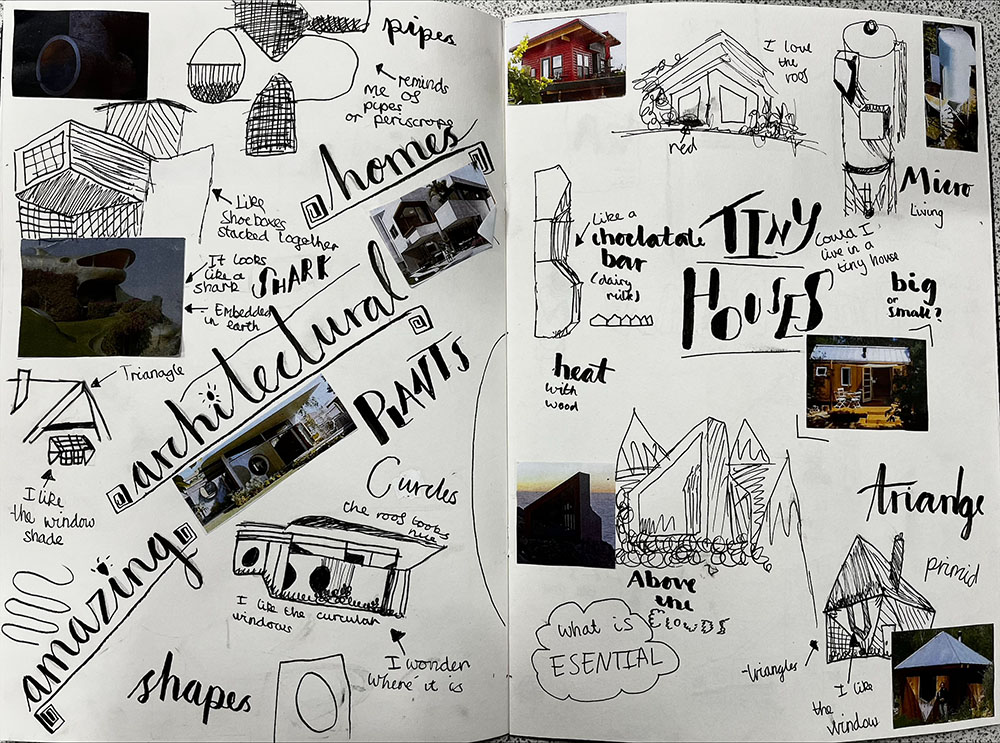 pipes
reminds
me os
pipes
or periscrope
homes
Like
Shoeboxes
stacked together
It looks
like a
shark
SHARK
Embedded
in earth
architectural
Trianagle
PLANTS
I like
the window
shade
Curcles
the roof looks
nice
amazing
I like the curcular
windows
I wonder
where it is
shapes
I love
the
roof
red
Micro
Living
Like a
choclatate
bar
(dairy
milk)
TINY
HOUSES
Could I
live in a
tiny house
big
or
small?
heat
with
wood
triange
primid
Above
the
ClOUDS
what is
ESENTIAL
-triangles
I like
the
window